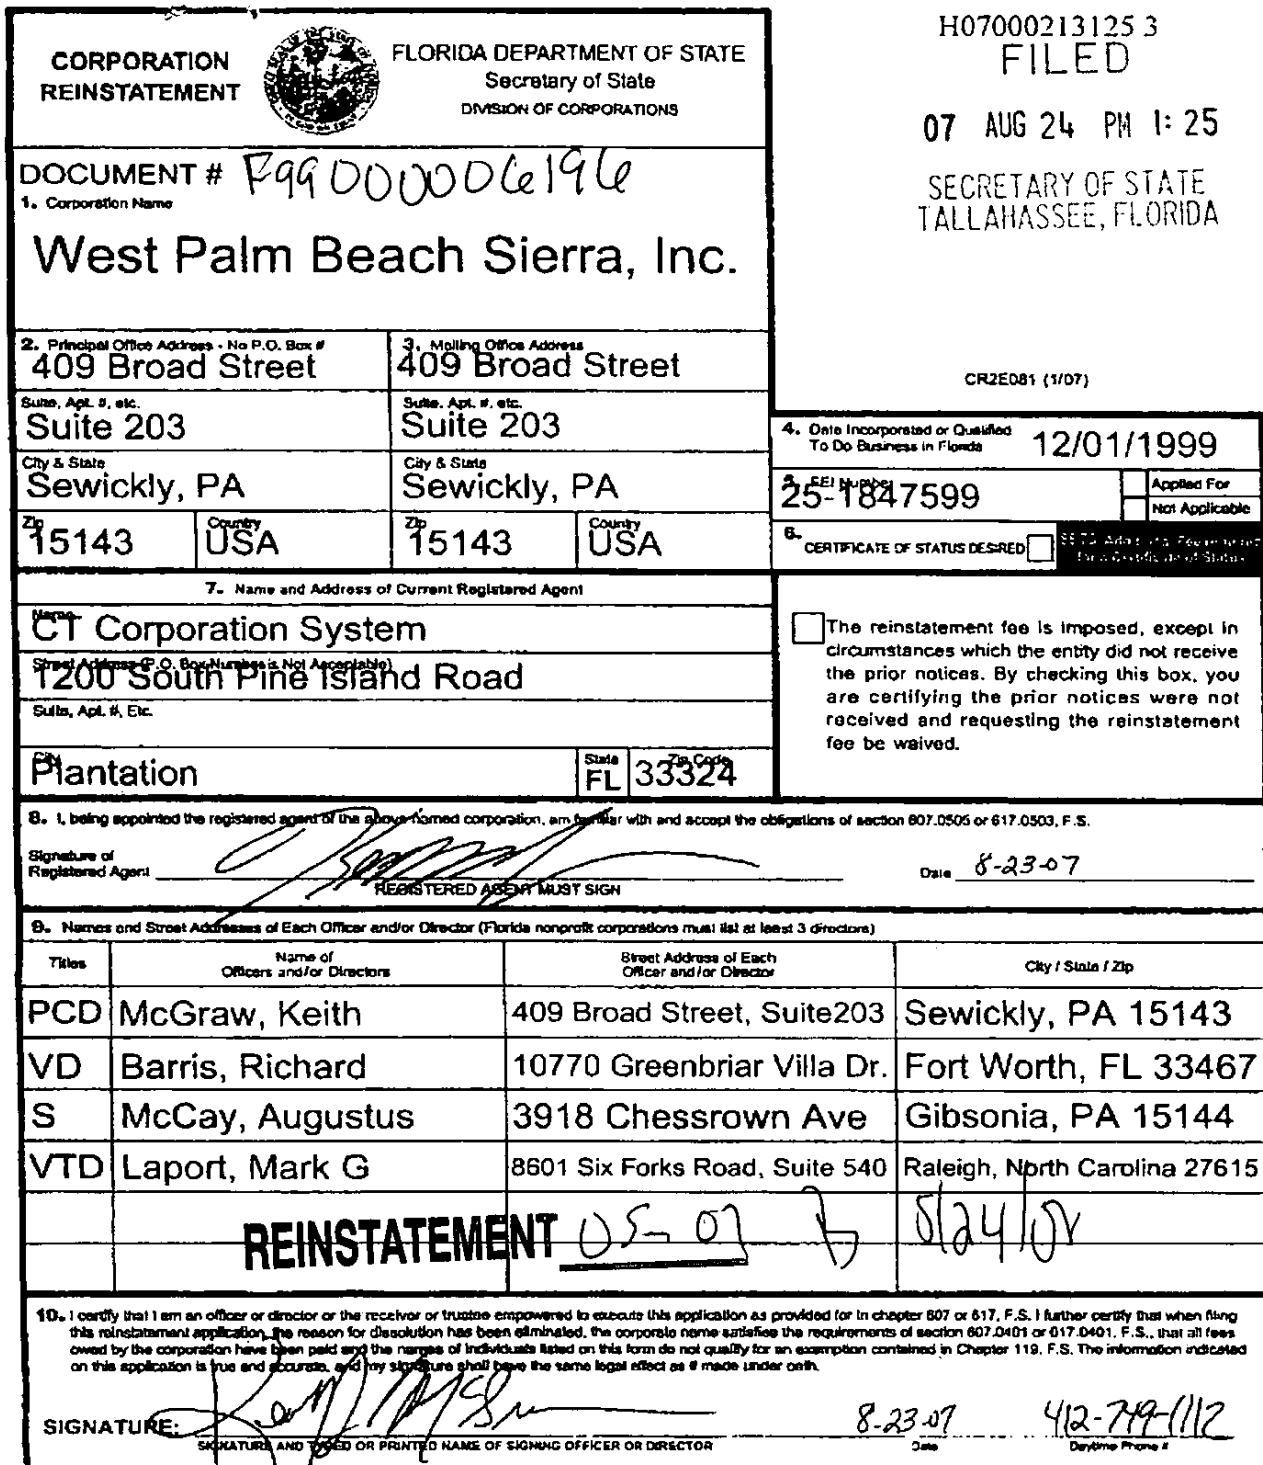 CORPORATION
REINSTATEMENT
FLORIDA DEPARTMENT OF STATE
Secretary of State
DIVISION OF CORPORATIONS
H07000213125 3
FILED
07 AUG 24 PM 1:25
SECRETARY OF STATE
TALLAHASSEE, FLORIDA
DOCUMENT # F99000006196
1. Corporation Name
West Palm Beach Sierra, Inc.
2. Principal Office Address - No P.O. Box #
409 Broad Street
3. Mailing Office Address
409 Broad Street
CR2E081 (1/07)
Suite, Apt. #, etc.
Suite 203
Suite, Apt. #, etc.
Suite 203
City & State
Sewickly, PA
City & State
Sewickly, PA
Zip
15143
Country
USA
Zip
15143
Country
USA
4. Date Incorporated or Qualified
To Do Business in Florida
12/01/1999
5. FEI Number
25-1847599
Applied For
Not Applicable
6. CERTIFICATE OF STATUS DESIRED
7. Name and Address of Current Registered Agent
Name
CT Corporation System
Street Address (P.O. Box Number is Not Acceptable)
1200 South Pine Island Road
Suite, Apt. #, Etc.
City
Plantation
State
FL
Zip Code
33324
The reinstatement fee is imposed, except in
circumstances which the entity did not receive
the prior notices. By checking this box, you
are certifying the prior notices were not
received and requesting the reinstatement
fee be waived.
8. I, being appointed the registered agent of the above named corporation, am familiar with and accept the obligations of section 607.0505 or 617.0503, F.S.
Signature of
Registered Agent
REGISTERED AGENT MUST SIGN
Date 8-23-07
9. Names and Street Addresses of Each Officer and/or Director (Florida nonprofit corporations must list at least 3 directors)
Titles
Name of
Officers and/or Directors
Street Address of Each
Officer and/or Director
City / State / Zip
PCD McGraw, Keith 409 Broad Street, Suite203 Sewickly, PA 15143
VD Barris, Richard 10770 Greenbriar Villa Dr. Fort Worth, FL 33467
S McCay, Augustus 3918 Chessrown Ave Gibsonia, PA 15144
VTD Laport, Mark G 8601 Six Forks Road, Suite 540 Raleigh, North Carolina 27615
REINSTATEMENT 05-07
10. I certify that I am an officer or director or the receiver or trustee empowered to execute this application as provided for in chapter 607 or 617, F.S. I further certify that when filing
this reinstatement application, the reason for dissolution has been eliminated, the corporate name satisfies the requirements of section 607.0401 or 617.0401, F.S., that all fees
owed by the corporation have been paid and the names of individuals listed on this form do not qualify for an exemption contained in Chapter 119, F.S. The information indicated
on this application is true and accurate, and my signature shall have the same legal effect as if made under oath.
SIGNATURE:
8-23-07
412-749-1112
SIGNATURE AND TYPED OR PRINTED NAME OF SIGNING OFFICER OR DIRECTOR
Date
Daytime Phone #